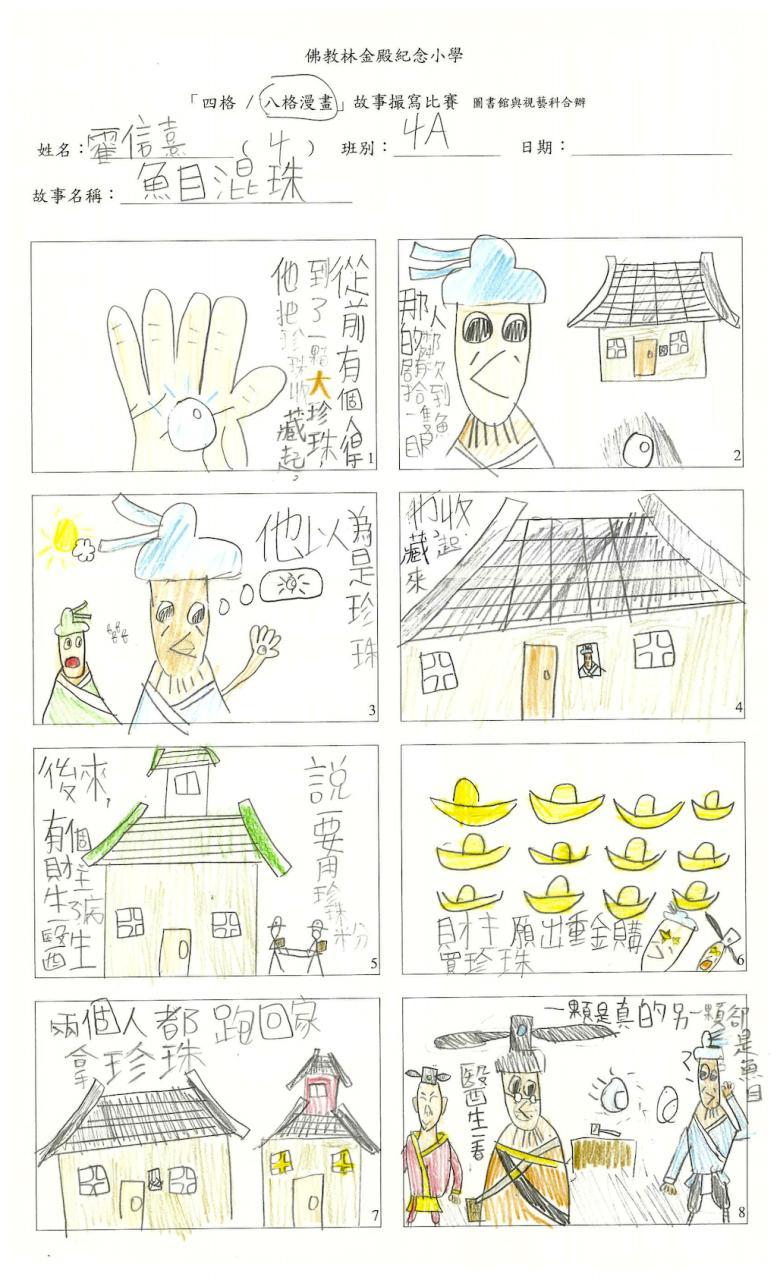 佛教林金殿紀念小學
「四格 / 八格漫畫」故事撮寫比賽 圖書館與視藝科合辦
姓名:霍信熹 ( 4 ) 班別:4A 日期:
故事名稱:魚目混珠
從前有個人得
到了一顆大珍珠,
他把珍珠收藏起。
1
那人
的鄰
居
拾到
一隻魚
目
2
他以
為是珍珠
3
收
藏起
來
4
後來,
有個
財主
生了病
醫生
說要用珍珠粉
5
財主願出重金購
買珍珠
6
兩個人都跑回家
拿珍珠
7
醫生一看
一顆是真的另一顆卻
是魚目
8